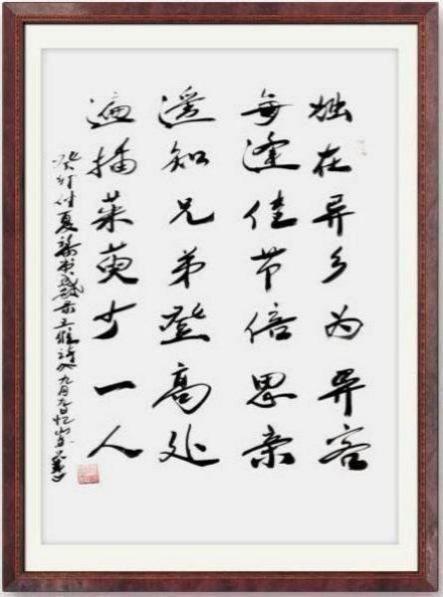 独在异乡为异客
每逢佳节倍思亲
遥知兄弟登高处
遍插茱萸少一人
癸卯仲夏 书 王维诗 九月九日忆山东兄弟